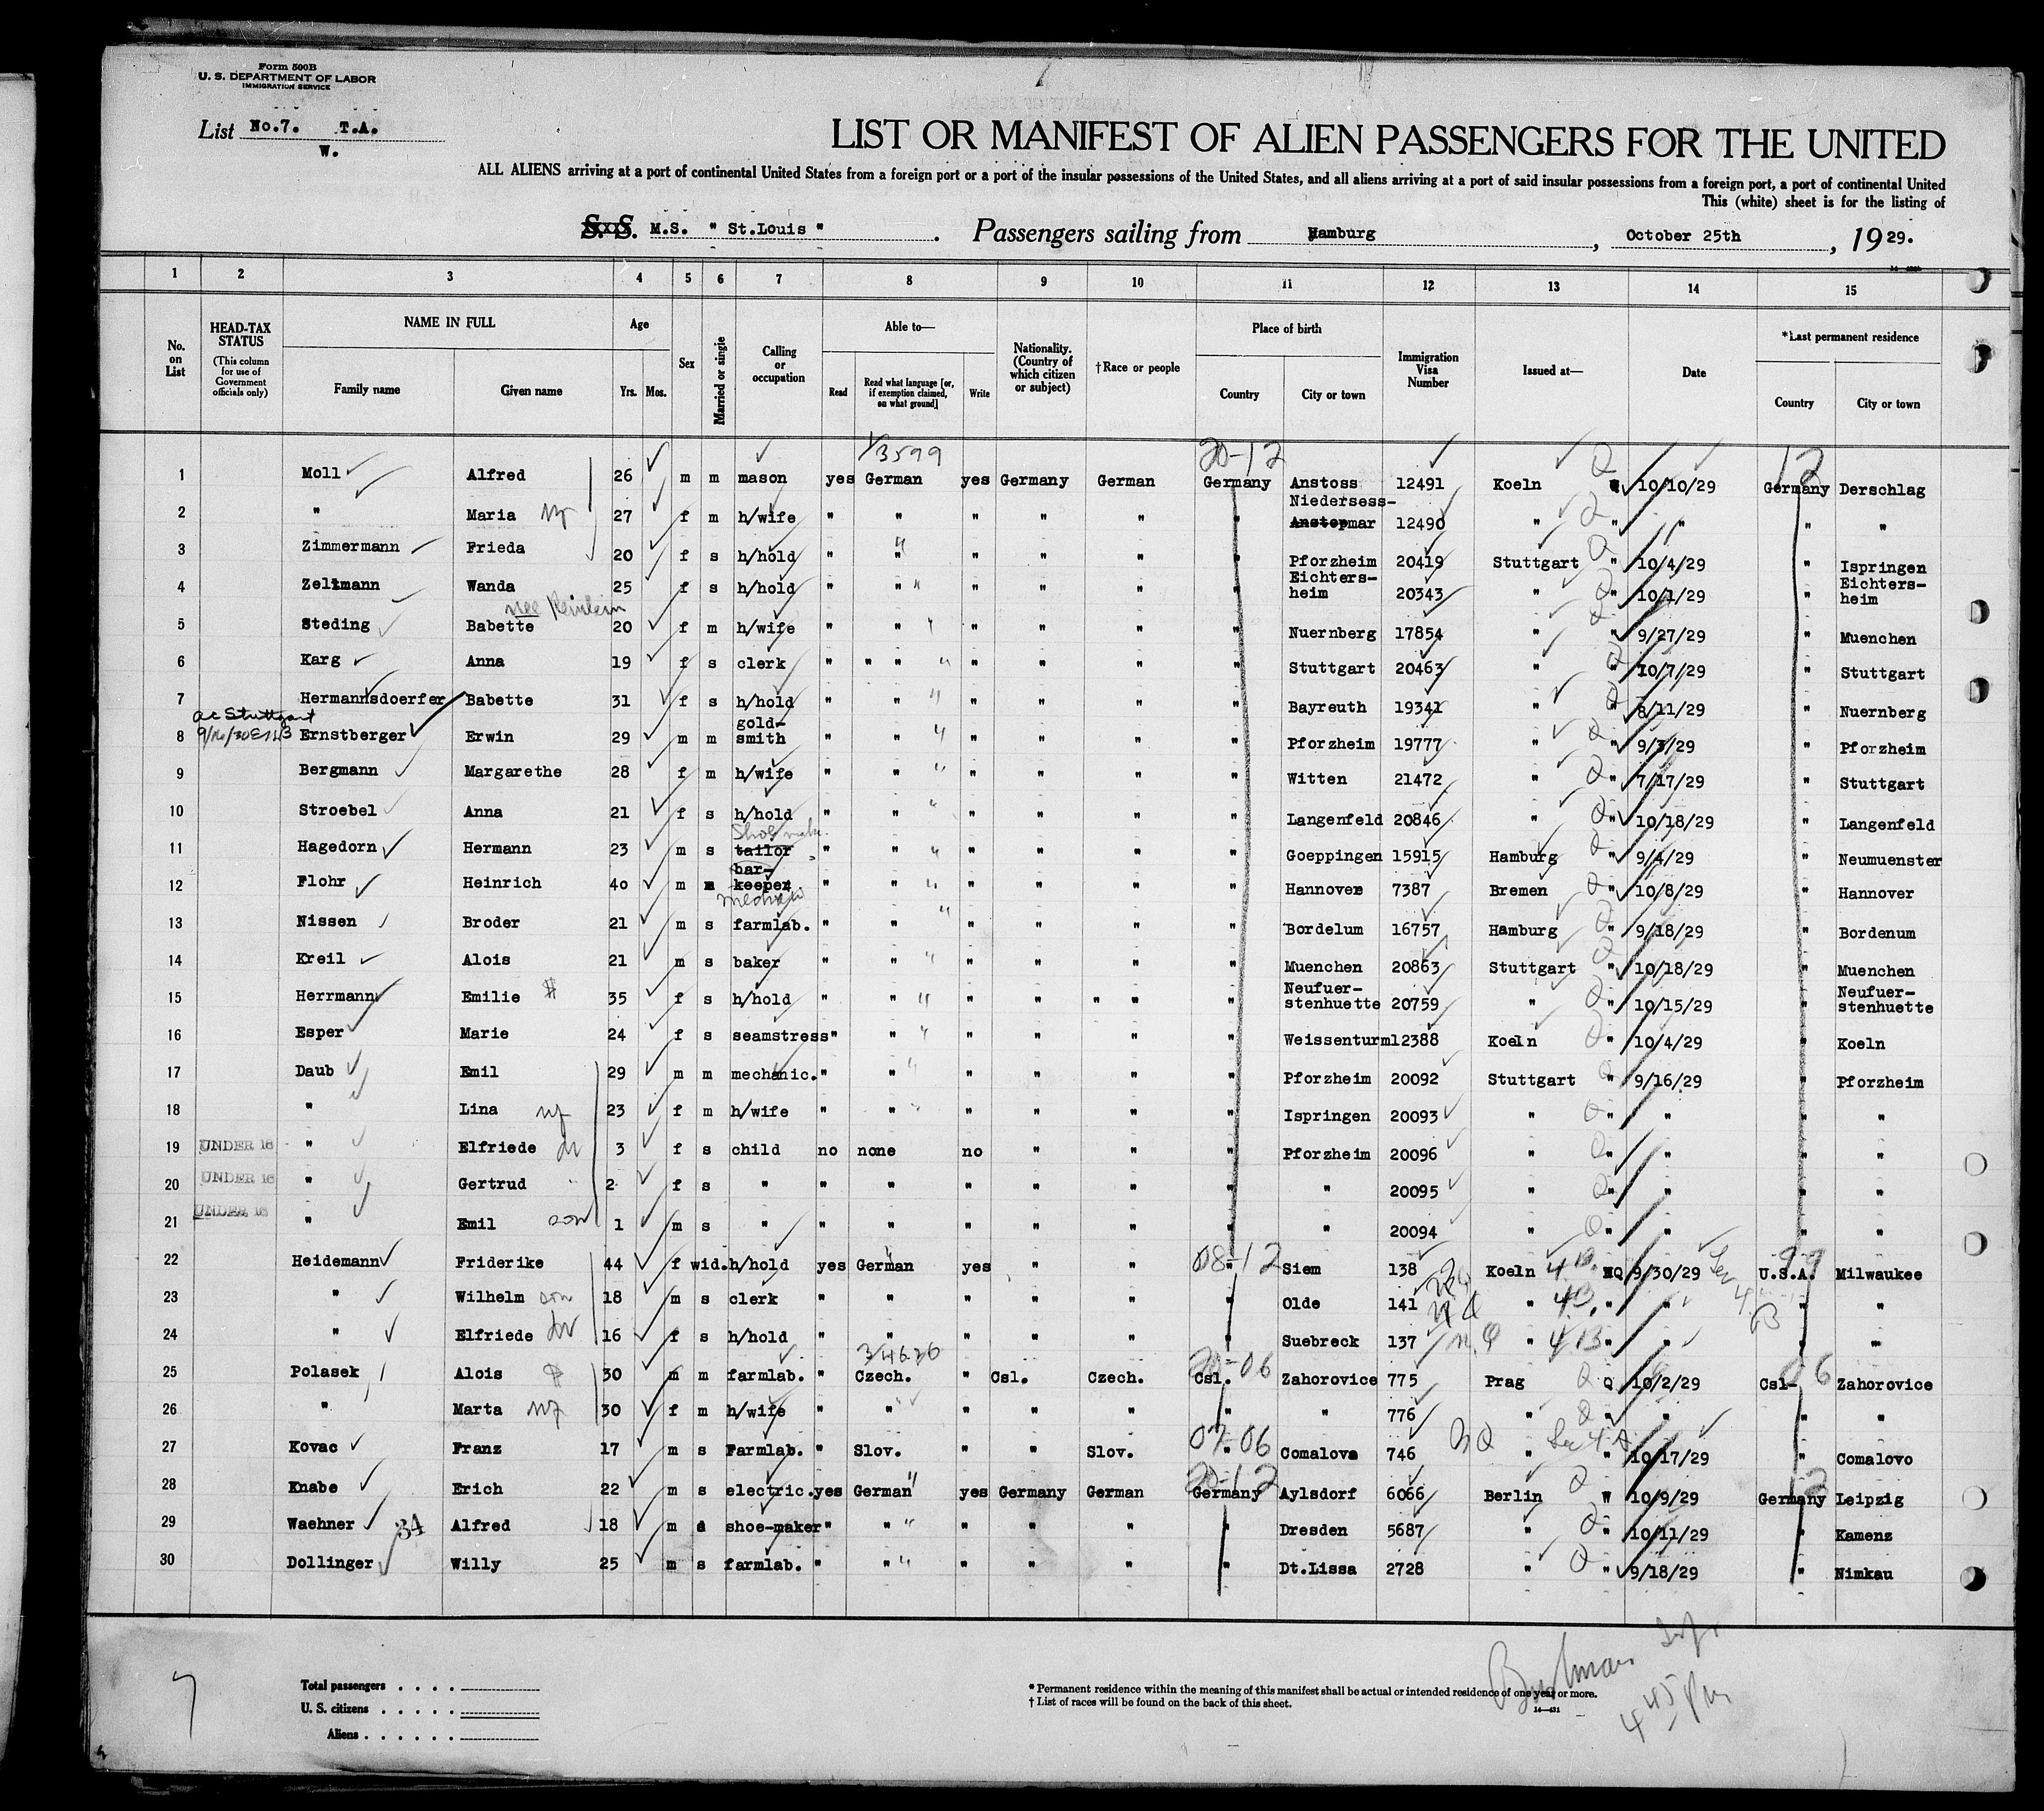 Form 500B
U. S. DEPARTMENT OF LABOR
IMMIGRATION SERVICE
List No.7. T.A.
W.
LIST OR MANIFEST OF ALIEN PASSENGERS FOR THE UNITED
ALL ALIENS arriving at a port of continental United States from a foreign port or a port of the insular possessions of the United States, and all aliens arriving at a port of said insular possessions from a foreign port, a port of continental United
This (white) sheet is for the listing of
S.S. M.S. " St.Louis " . Passengers sailing from Hamburg , October 25th , 1929.
1 2 3 4 5 6 7 8 9 10 11 12 13 14 15
No. on List
HEAD-TAX STATUS (This column for use of Government officials only)
NAME IN FULL
Family name Given name
Age
Yrs. Mos.
Sex
Married or single
Calling or occupation
Able to—
Read Read what language [or, if exemption claimed, on what ground] Write
Nationality. (Country of which citizen or subject)
†Race or people
Place of birth
Country City or town
Immigration Visa Number
Issued at—
Date
*Last permanent residence
Country City or town
13599 20-12 12
1 Moll Alfred 26 m m mason yes German yes Germany German Germany Anstoss 12491 Koeln Q 10/10/29 Germany Derschlag
Niedersess-
2 " Maria wf 27 f m h/wife " " " " " " Anstopmar 12490 " Q " " " "
3 Zimmermann Frieda 20 f s h/hold " " " " " " Pforzheim 20419 Stuttgart Q " 10/4/29 " Ispringen
Eichters- Eichters-
4 Zeltmann Wanda 25 f s h/hold " " " " " " heim 20343 " Q " 10/1/29 " heim
nee
5 Steding Babette 20 f m h/wife " " " " " " Nuernberg 17854 " Q " 9/27/29 " Muenchen
6 Karg Anna 19 f s clerk " " " " " " " Stuttgart 20463 " Q " 10/7/29 " Stuttgart
7 Hermannsdoerfer Babette 31 f s h/hold " " " " " " Bayreuth 19341 " Q " 8/11/29 " Nuernberg
a.c Stuttgart gold-
8 Ernstberger Erwin 29 m m smith " " " " " " Pforzheim 19777 " Q " 9/3/29 " Pforzheim
9 Bergmann Margarethe 28 f m h/wife " " " " " " Witten 21472 " Q " 7/17/29 " Stuttgart
10 Stroebel Anna 21 f s h/hold " " " " " " Langenfeld 20846 " Q " 10/18/29 " Langenfeld
11 Hagedorn Hermann 23 m s tailor " " " " " " Goeppingen 15915 Hamburg Q " 9/4/29 " Neumuenster
bar-
12 Flohr Heinrich 40 m m keeper " " " " " " Hannover 7387 Bremen Q " 10/8/29 " Hannover
13 Nissen Broder 21 m s farmlab. " " " " " " Bordelum 16757 Hamburg Q " 9/18/29 " Bordenum
14 Kreil Alois 21 m s baker " " " " " " Muenchen 20863 Stuttgart Q " 10/18/29 " Muenchen
Neufuer- Neufuer-
15 Herrmann Emilie 35 f s h/hold " " " " " " " stenhuette 20759 " Q " 10/15/29 " stenhuette
16 Esper Marie 24 f s seamstress " " " " " " Weissenturm 12388 Koeln Q " 10/4/29 " Koeln
17 Daub Emil 29 m m mechanic. " " " " " " Pforzheim 20092 Stuttgart Q " 9/16/29 " Pforzheim
18 " Lina wf 23 f m h/wife " " " " " " Ispringen 20093 " Q " " " "
19 UNDER 16 " Elfriede 3 f s child no none no " " " Pforzheim 20096 " Q " " " "
20 UNDER 16 " Gertrud 2 f s " " " " " " " " 20095 " Q " " " "
21 UNDER 16 " Emil son 1 m s " " " " " " " " 20094 " Q " " " "
08-12 99
22 Heidemann Friderike 44 f wid. h/hold yes German yes " " " Siem 138 Koeln NQ 9/30/29 U.S.A. Milwaukee
23 " Wilhelm son 18 m s clerk " " " " " " Olde 141 " " " " "
24 " Elfriede 16 f s h/hold " " " " " " Suebreck 137 " " " " "
34626 20-06 06
25 Polasek Alois 30 m m farmlab. " Czech. " Csl. Czech. Csl. Zahorovice 775 Prag Q Q 10/2/29 Csl- Zahorovice
26 " Marta wf 30 f m h/wife " " " " " " " 776 " Q " " " "
07-06
27 Kovac Franz 17 m s Farmlab. " Slov. " " Slov. " Comalova 746 NQ " 10/17/29 " Comalovo
20-12 12
28 Knabe Erich 22 m s electric. yes German yes Germany German Germany Aylsdorf 6066 Berlin Q W 10/9/29 Germany Leipzig
29 Waehner 34 Alfred 18 m s shoe-maker " " " " " " Dresden 5687 " Q " 10/11/29 " Kamenz
30 Dollinger Willy 25 m s farmlab. " " " " " " Dt.Lissa 2728 " Q " 9/18/29 " Nimkau
7
Total passengers . . . .
U. S. citizens . . . . .
Aliens . . . . . .
* Permanent residence within the meaning of this manifest shall be actual or intended residence of one year or more.
† List of races will be found on the back of this sheet.
445 Pm